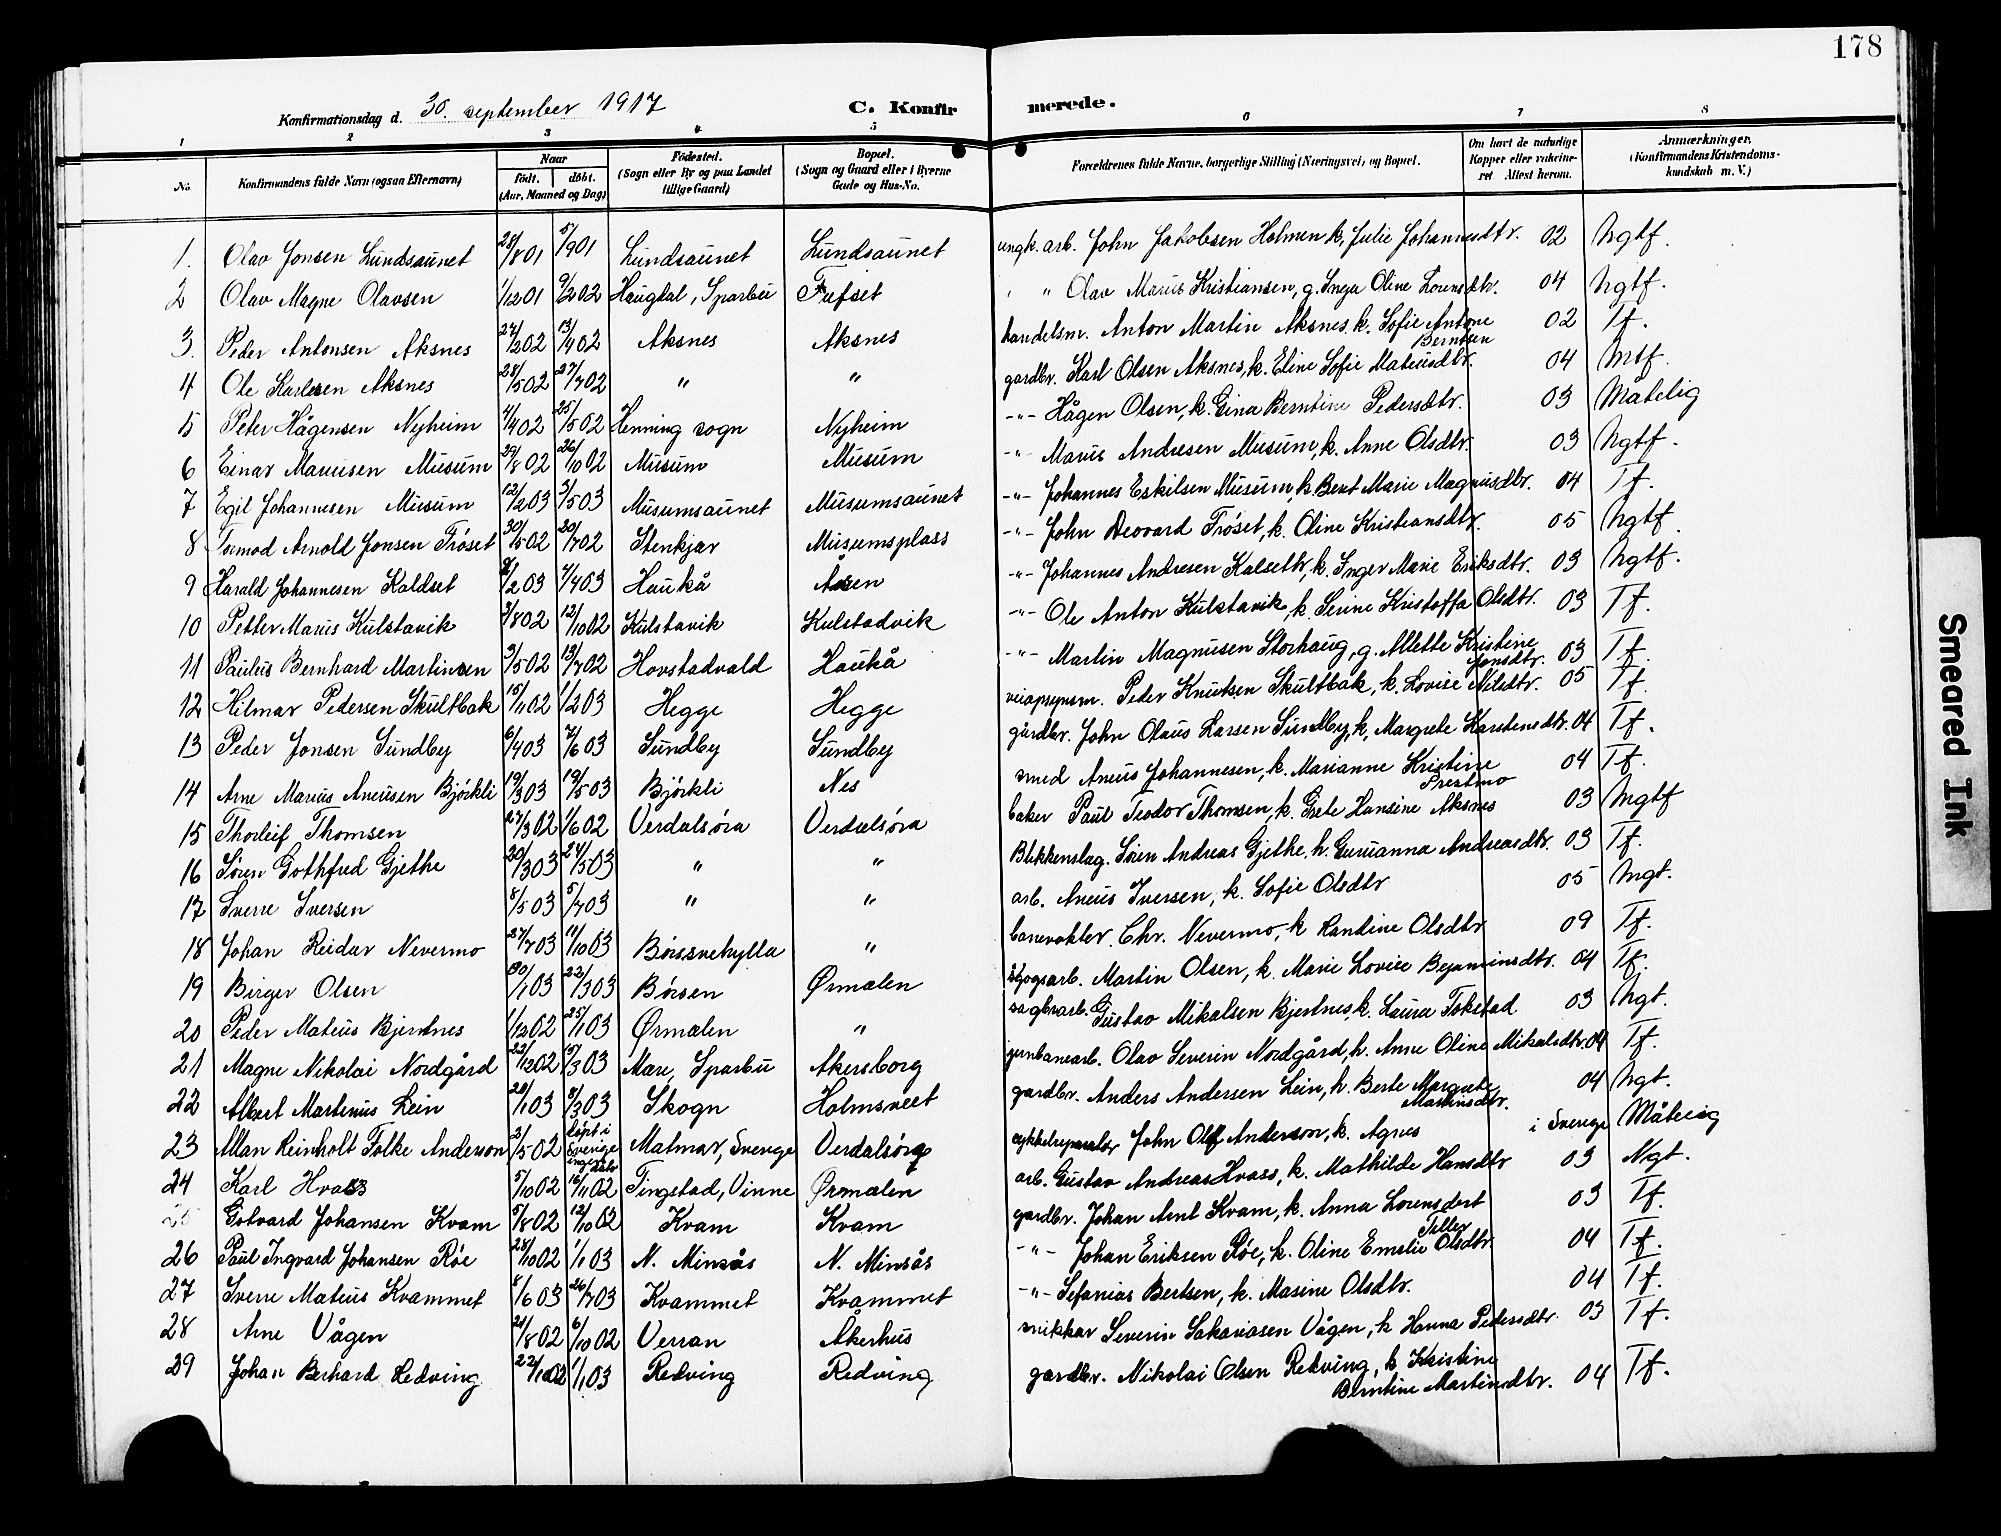 178
Konfirmationsdag d. 30. september 1917 C. Konfir merede.
1 2 3 4 5 6 7 8
No. Konfirmandens fulde Navn (ogsaa Efternavn) Naar født. døbt. (Aar, Maaned og Dag) Fødested. (Sogn eller By og paa Landet tillige Gaard) Bopæl. (Sogn og Gaard eller i Byerne Gade og Hus-No. Forældrenes fulde Navne, borgerlige Stilling (Næringsvei) og Bopæl. Om havt de naturlige Kopper eller vakcineret Attest herom. Anmærkninger. (Konfirmandens Kristendomskundskab m. V.)
1. Olav Jonsen Lundsaunet 28/8 01 5/9 01 Lundsaunet Lundsaunet ungk. arb. John Jakobsen Holmen k, Julie Johannesdtr. 02 Ngtf.
2 Olav Magne Olavsen 1/12 01 9/2 02 Haugdal, Sparbu Fufset " Olav Marius Kristiansen, g. Inga Oline Lorensdtr. 04 Ngtf.
3. Peder Antonsen Aksnes 27/2 02 13/4 02 Aksnes Aksnes handelsm. Anton Martin Aksnes, k. Sofie Antone Berntsen 02 Tf.
4 Ole Karlesen Aksnes 28/5 02 27/7 02 " " gardbr. Karl Olsen Aksnes, k. Eline Sofie Mateusdtr. 04 Mtf.
5 Peter Hågensen Nyheim 4/4 02 25/5 02 Henning sogn Nyheim -"- Hågen Olsen, k. Gina Berntine Pedersdtr. 03 Måtelig
6 Einar Mariusen Musum 29/8 02 26/10 02 Musum Musum -"- Marius Andresen Musum, k. Anne Olsdtr. 03 Ngtf.
7 Egil Johannesen Musum 12/2 03 3/5 03 Musumsaunet Musumsaunet -"- Johannes Eskilsen Musum, k. Beret Marie Magnusdtr. 04 Tf.
8 Tormod Arnold Jonsen Trøset 30/5 02 20/7 02 Stenkjær Musumsplass -"- John Deovard Trøset, k. Oline Kristiansdtr. 05 Ngtf.
9 Harald Johannesen Kaldset /2 03 7/4 03 Haukå Åsen -"- Johannes Andresen Kalsetbr, k. Inger Marie Eriksdtr. 03 Ngtf.
10 Petter Marius Kulstavik 3/8 02 12/10 02 Kulstavik Kulstadvik -"- Ole Anton Kulstavik, k. Serine Kristoffa Olsdtr. 03 Tf.
11 Paulus Bernhard Martinsen 3/5 02 13/7 02 Hovstadvald Haukå -"- Martin Magnusen Storhaug, g. Mette Kristine Jonsdtr. 03 Tf.
12 Hilmar Pedersen Skultbak 15/11 02 1/2 03 Hegge Hegge veiopsynsm. Peder Knutsen Skultbak, k. Lovise Nilsdtr. 05 Tf.
13 Peder Jonsen Sundby 6/4 03 7/6 03 Sundby Sundby gårdbr. John Olaus Larsen Sundby, k, Margrete Karstensdtr. 04 Tf.
14 Arne Marius Aneusen Bjørkli 19/3 03 19/5 03 Bjørkli Nes smed Aneus Johannesen, k. Marianne Kristine Prestmo 04 Tf.
15 Thorleif Thomsen 27/3 02 1/6 02 Verdalsøra Verdalsøra baker Paul Teodor Thomsen, k. Grete Hansine Aksnes 03 Mgtf
16 Søren Gothfred Gjethe 20/3 03 24/5 03 " " Blikkenslag. Søren Andreas Gjethe, h. Gurianna Andreasdtr. 03 Tf.
17 Sverre Iversen 8/5 03 5/7 03 " " arb. Aneus Iversen, k. Sofie Olsdtr 05 Mgt.
18 Johan Reidar Nevermo 27/7 03 11/10 03 Børssvehylla " banevokter. Chr. Nevermo, k Randine Olsdtr 09 Tf.
19 Birger Olsen 30/1 03 22/3 03 Børsen Ørmelen skogsarb. Martin Olsen, k. Marie Lovise Bejaminsdtr. 04 Tf.
20 Peder Mateus Bjertnes 1/12 02 25/1 03 Ørmelen " sagbrarb. Gustav Mikalsen Bjertnes, k. Laura Tokstad 03 Ngt.
21 Magne Nikolai Nordgård 22/12 02 15/3 03 Mære, Sparbu Akersborg jernbanearb. Olav Severin Nordgård, h. Anne Oline Mikalsdtr. 04 Tf.
22 Albert Martinus Lein 28/1 03 8/3 03 Skogn Holmsveet gardbr. Anders Andersen Lein, h. Berte Margrete Martinsdtr. 04 Ngt.
23 Allan Reinholt Folke Anderson 2/5 02 døpt i Sverige ingen dato Malmø, Sverige Verdalsøra cykkelreparatør John Olof Anderson, k. Agnes i Sverige Måtelig
24 Karl Hvass 5/10 02 16/11 02 Tingstad, Vinne Ørmelen arb. Gustav Andreas Hvass, k. Mathilde Hansdtr 03 Ngt.
25 Gotvard Johansen Kvam 5/8 02 12/10 02 Kvam Kvam gardbr. Johan Arnt Kvam, k. Anna Lorensdert Tiller 03 Tf.
26 Paul Ingvard Johansen Røe 28/10 02 1/1 03 N. Minsås N. Minsås -"- Johan Eriksen Røe, k. Oline Emelie Olsdtr. 04 Tf.
27 Sverre Mateus Kvammet 8/6 03 26/7 03 Kvammet Kvammet -"- Sefanias Bertsen, k. Masine Olsdtr. 04 Tf.
28 Arne Vågen 21/8 02 6/10 02 Verran Åkerhus snikkar Severin Sakariasen Vågen, k Hanna Pedersdtr. 03 Tf.
29 Johan Berhard Redving 22/10 02 1/1 03 Redving Redving gardbr. Nikolai Olsen Redving, k Kristine Berntine Martinsdtr. 04 Tf.
Smeared Ink